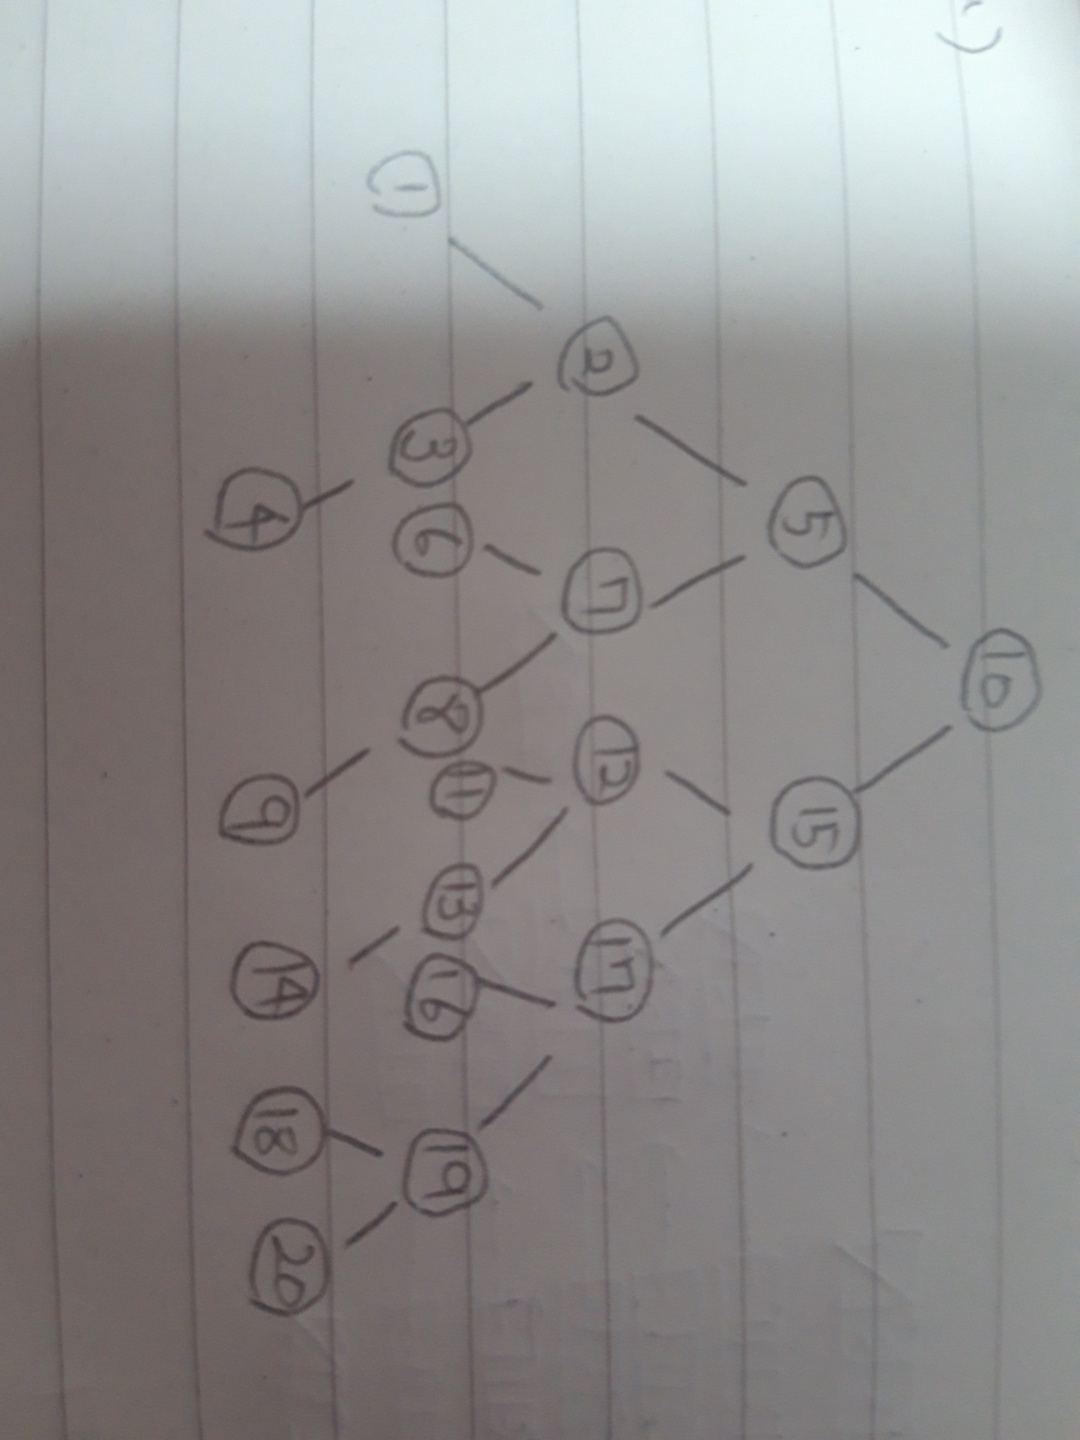 10
5 15
2 7 12 17
1 3 6 8 11 13 16 19
4 9 14 18 20